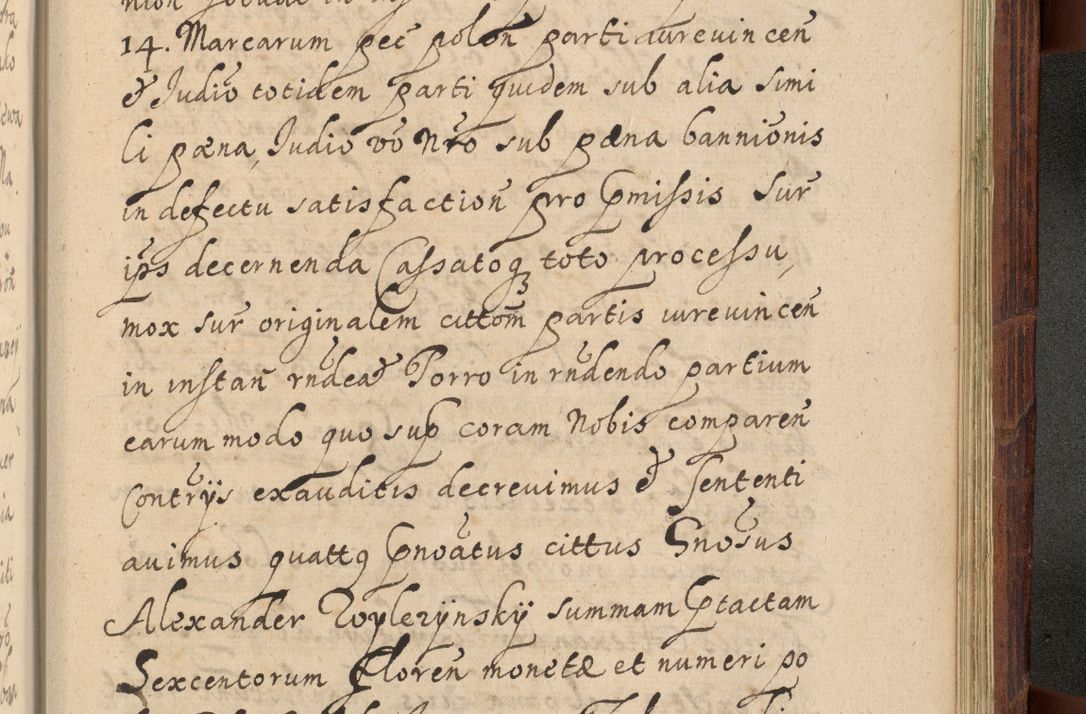 14. Marcarum pec polon parti iurevincen
et Iudio totidem parti quidem sub alia simi
li pæna, Iudio vo Nro sub pæna bannionis
in defectu satisfaction pro pmissis sur
ips decernenda Cassatoq toto processu,
mox sur originalem cittom partis iurevincen
in instan rndeat Porro in rndendo partium
earum modo quo sup coram Nobis comparen
Contrijs exauditis decrevimus et Sententi
avimus quattq pnoatus cittus Gnosus
Alexander Woylezynskÿ summam ptactam
Sexcentorum Floren monetæ et numeri po